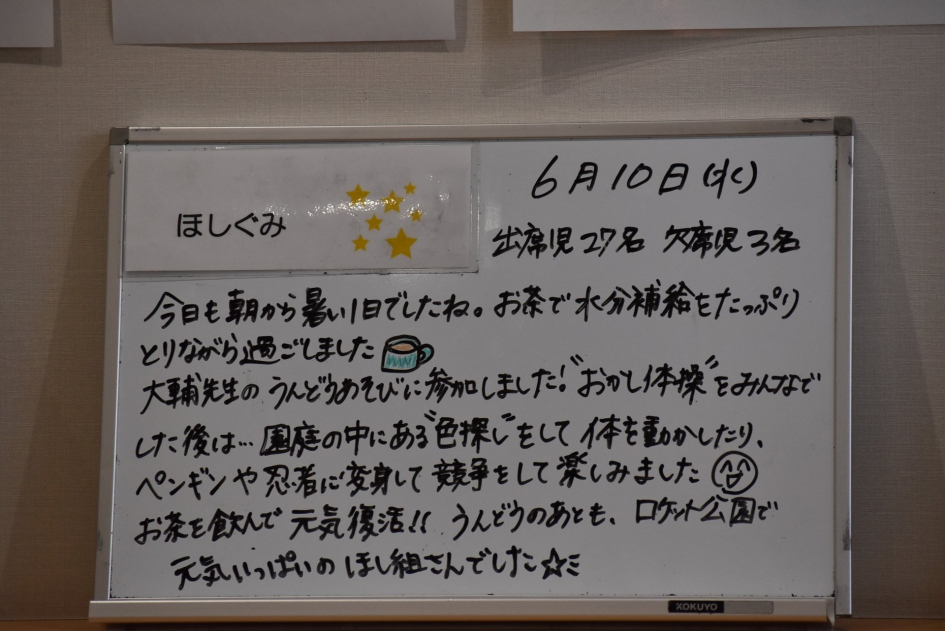 ほしぐみ
6月10日(水)
出席児27名 欠席児3名
今日も朝から暑い1日でしたね。お茶で水分補給をたっぷり
とりながら過ごしました
大輔先生のうんどうあそびに参加しました!"おかし体操"をみんなで
した後は…園庭の中にある"色探し"をして体を動かしたり、
ペンギンや忍者に変身して競争をして楽しみました
お茶を飲んで元気復活!! うんどうのあとも、ロケット公園で
元気いっぱいのほし組さんでした☆ミ
KOKUYO